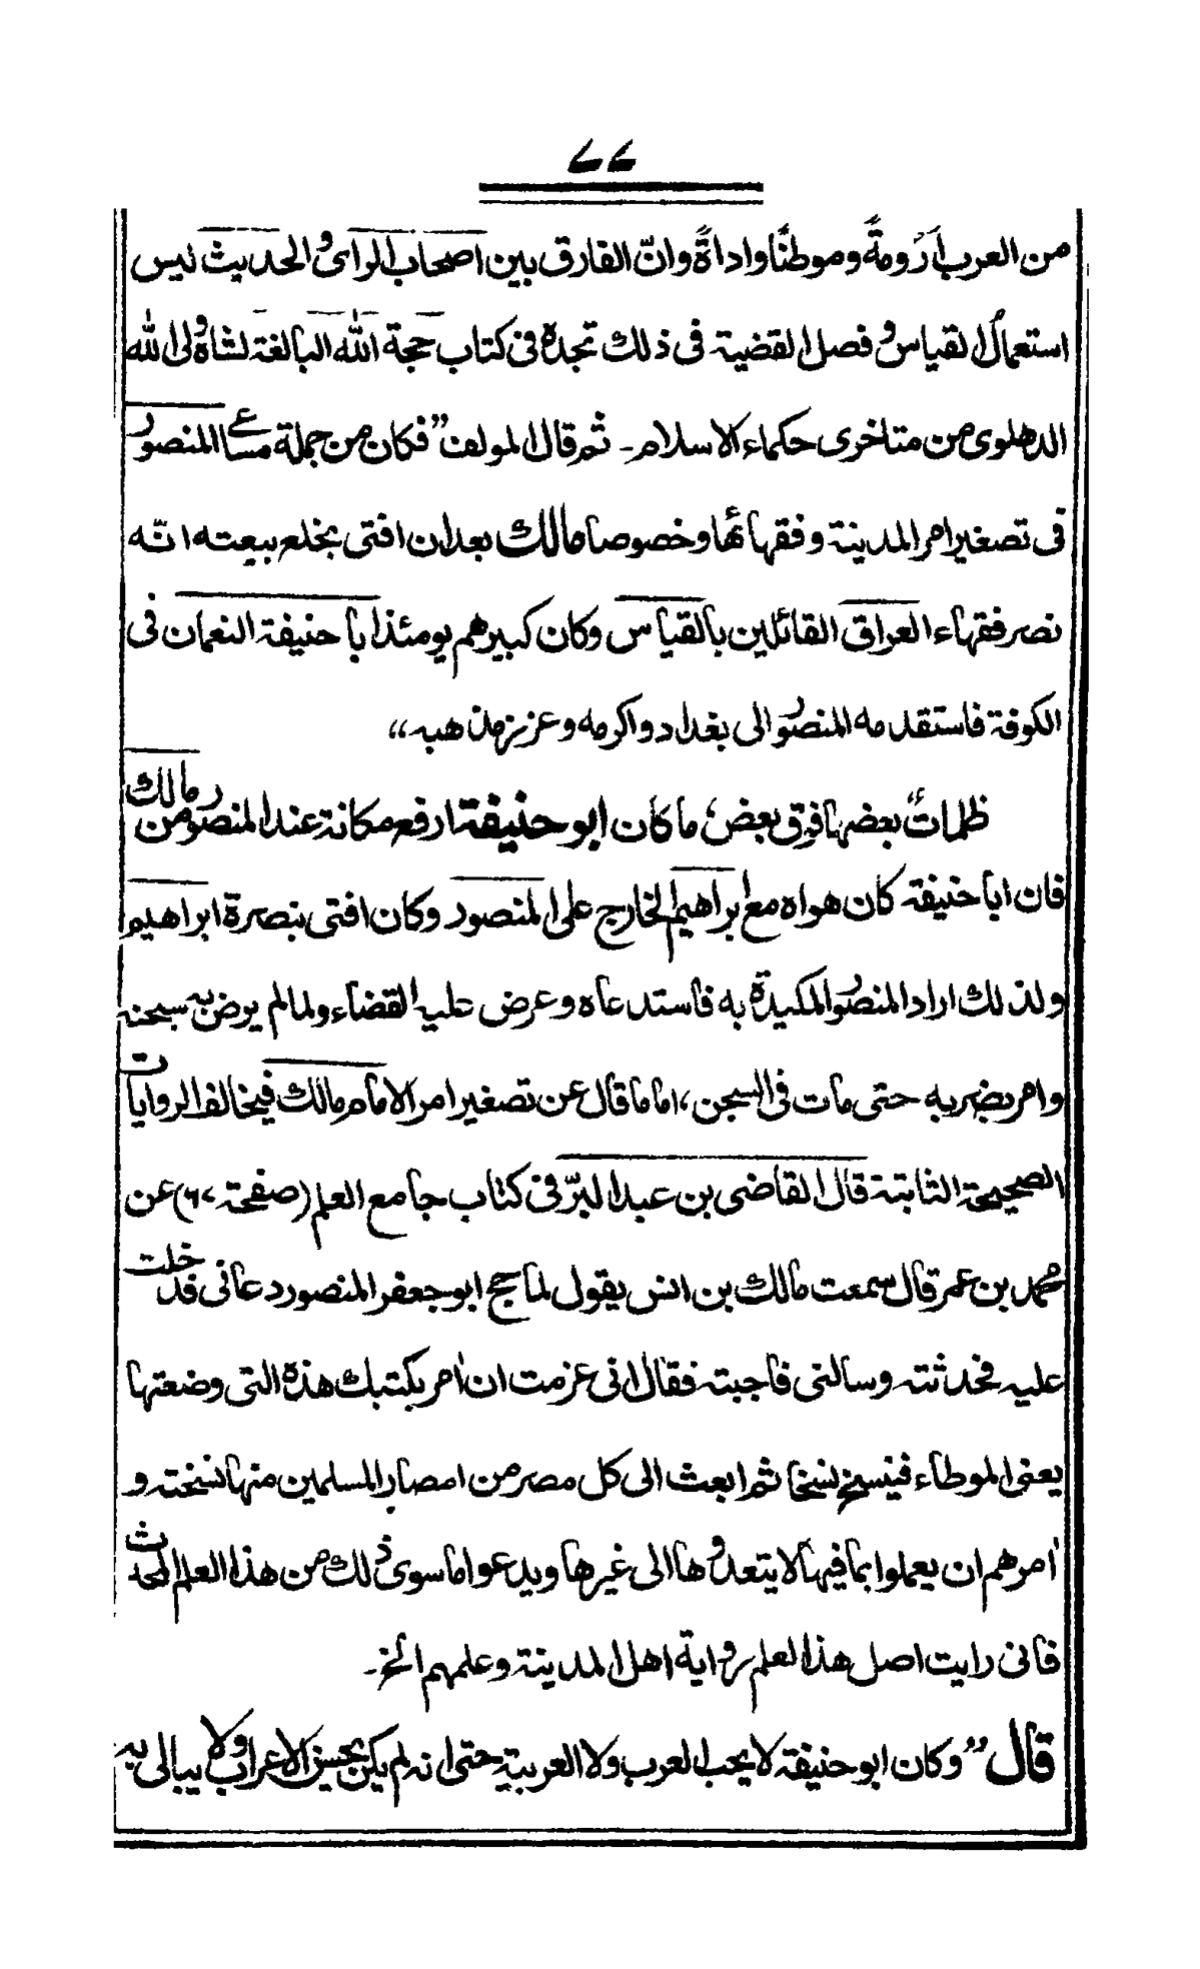 ٧٧
من العرب أرُومةً وموطنًا واداةً وانّ الفارق بين اصحاب الراى والحديث ليس
استعمال القياس وفصل القضية فى ذلك تجده فى كتاب حجة الله البالغة لشاه ولى الله
الدهلوى من متاخرى حكماء الاسلام۔ ثم قال المولف ”فكان من جملة مساعى المنصور
فى تصغير امر المدينة وفقهائها وخصوصا مالك بعد ان افتى بخلع بيعته انّه
نصر فقهاء العراق القائلين بالقياس وكان كبيرهم يومئذ ابا حنيفة النعمان فى
الكوفة فاستقدمه المنصور الى بغداد واكرمه وعزز مذهبه“
ظلماتٌ بعضها فوق بعض، ما كان ابو حنيفة ارفع مكانة عند المنصور من مالك
فان ابا حنيفة كان هواه مع ابراهيم الخارج على المنصور وكان افتى بنصرة ابراهيم
ولذلك اراد المنصور المكيدة به فاستدعاه وعرض عليه القضاء ولما لم يرض به سجنه
وامر بضربه حتى مات فى السجن، اما ما قال عن تصغير امر الامام مالك فيخالف الروايات
الصحيحة الثابتة قال القاضى بن عبد البرّ فى كتاب جامع العلم (صفحة ٦٧) عن
محمد بن عمر قال سمعت مالك بن انس يقول لما حج ابو جعفر المنصور دعانى فدخلت
عليه فحدثته وسالنى فاجبته فقال انى عزمت ان اٰمر بكتبك هذه التى وضعتها
يعنى الموطاء فينسخ نسخا ثم ابعث الى كل مصر من امصار المسلمين منها نسخته و
اٰمرهم ان يعملوا بما فيها لا يتعدوها الى غيرها ويدعوا ما سوى ذلك من هذا العلم المحدث
فانى رايت اصل هذا العلم رواية اهل المدينة وعلمهم الخ۔
قال ”وكان ابو حنيفة لا يحب العرب ولا العربية حتى انه لم يكن يحسن الاعراب ولا يبالى به